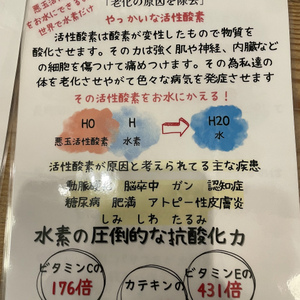 悪玉活性
をお水にできる
世界で水素だけ
「老化の原因を除去」
やっかいな活性酸素
活性酸素は酸素が変性したもので物質を
酸化させます。その力は強く肌や神経、内臓など
の細胞を傷つけて痛めつけます。その為私達の
体を老化させやがて色々な病気を発症させます
その活性酸素をお水にかえる!
HO H H2O
悪玉活性酸素 水素 水
活性酸素が原因と考えられてる主な疾患
動脈 脳卒中 ガン 認知症
糖尿病 肥満 アトピー性皮膚炎
しみ しわ たるみ
水素の圧倒的な抗酸化力
ビタミンCの
176倍
カテキンの
ビタミンEの
431倍